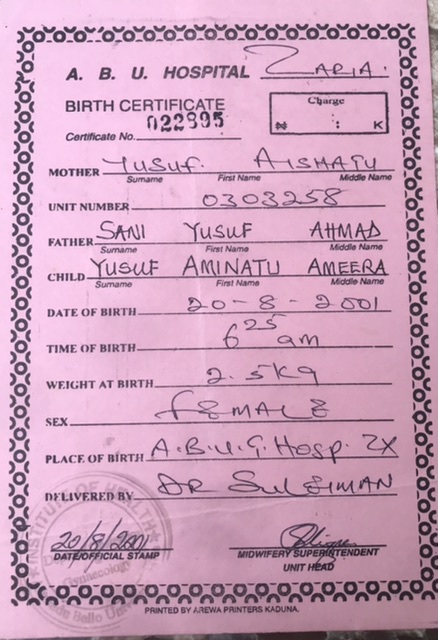 A. B. U. HOSPITAL ZARIA.
BIRTH CERTIFICATE
Charge
₦ : K
Certificate No. 022895
MOTHER Yusuf. AISHATU
Surname First Name Middle Name
UNIT NUMBER 0303258
FATHER SANI YUSUF AHMAD
Surname First Name Middle Name
CHILD YUSUF AMINATU AMEERA
Surname First Name Middle Name
DATE OF BIRTH 20-8-2001
TIME OF BIRTH 6 25 am
WEIGHT AT BIRTH 2.5Kg
SEX FEMALE
PLACE OF BIRTH A.B.U.G. Hosp. ZX
DELIVERED BY DR SULEIMAN
20/8/2001
DATE/OFFICIAL STAMP
MIDWIFERY SUPERINTENDENT
UNIT HEAD
INSTITUTE OF HEALTH
Gynaecology
Bello
PRINTED BY AREWA PRINTERS KADUNA.